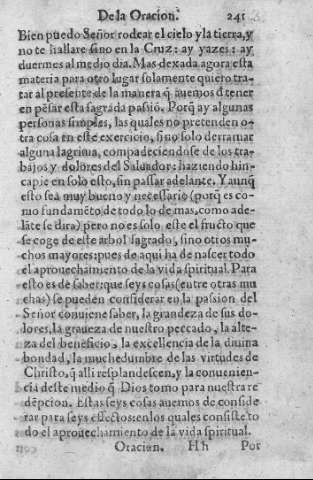 De la Oracion. 241
Bien puedo Señor rodear el cielo y la tierra, y
no te hallare sino en la Cruz: ay yazes: ay
duermes al medio dia. Mas dexada agora esta
materia para otro lugar solamente quiero tra-
tar al presente de la manera q̃ auemos d̃ tener
en pẽsar esta sagrada passiõ. Porq̃ ay algunas
personas simples, las quales no pretenden o-
tra cosa en este exercicio, sino solo derramar
alguna lagrima, compadeciendose de los tra-
bajos y dolores del Saluador: haziendo hin-
capie en solo esto, sin passar adelante. Y aunq̃
esto sea muy bueno y necessario (porq̃ es co-
mo fundamẽto de todo lo de mas, como ade-
lãte se dira) pero no es solo este el fructo que
se coge de este arbol sagrado, sino otros mu-
chos mayores: pues de aqui ha de nascer todo
el aprouechamiento de la vida spiritual. Para
esto es de saber: que seys cosas (entre otras mu
chas) se pueden considerar en la passion del
Señor conuiene saber, la grandeza de sus do-
lores, la graueza de nuestro peccado, la alte-
za del beneficio, la excellencia de la diuina
bondad, la muchedumbre de las virtudes de
Christo, q̃ alli resplandescen, y la conuenien-
cia deste medio q̃ Dios tomo para nuestra re
dẽpcion. Estas seys cosas auemos de conside
rar para seys effectos: en los quales consiste to
do el aprouechamiento de la vida spiritual.
Oracion. Hh Por